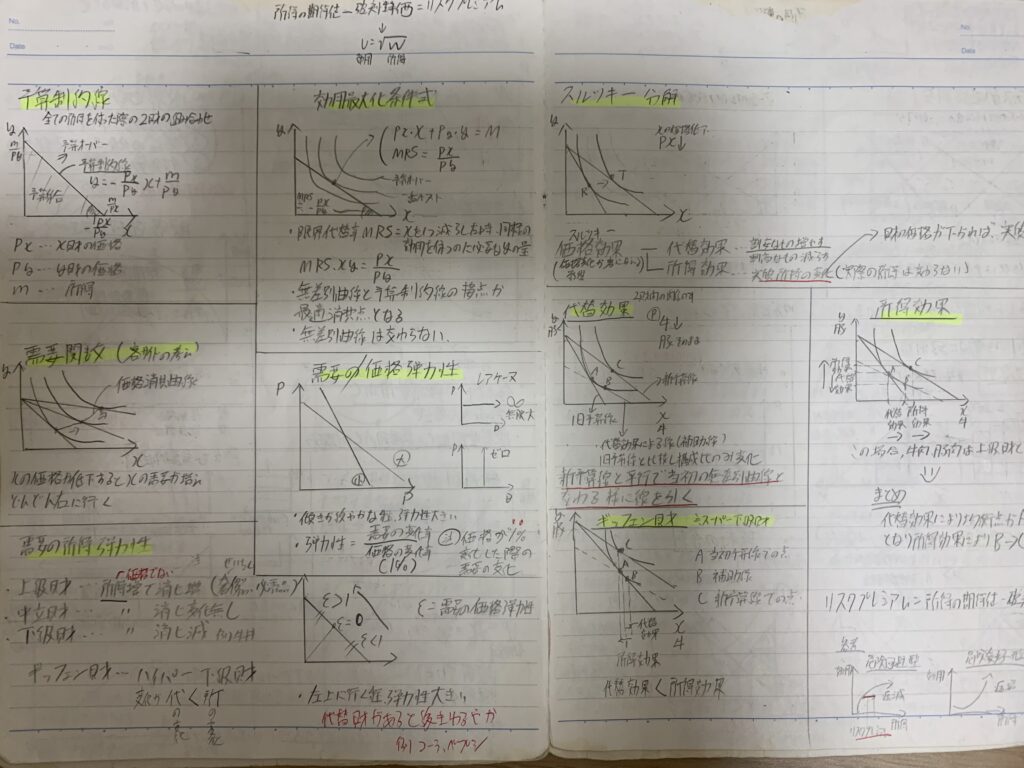 No.
Date
所得の期待値ー確実等価=リスクプレミアム
U=√W
効用 所得
予算制約線
全ての所得を使った際の2財の組合せ
y
m/Py
予算オーバー
予算制約線
y=-Px/Py x+m/Py
予算集合
m/Px
-Px/Py
x
Px… x財の価格
Py… y財の価格
m… 所得
需要関数
y
価格消費曲線
x
xの価格が低下するとxの需要が増加
どんどん右に行く
需要の所得弾力性
価格でない
・上級財… 所得増で消費増
・中立財… 〃 消費変化無し
・下級財… 〃 消費減
ギッフェン財… ハイパー下級財
効用最大化条件式
y
Px・x+Py・y=M
MRS=Px/Py
予算オーバー
MRS
-Px/Py
x
・限界代替率MRS=xを1つ減らしたとき、同程の
効用を保つのに必要なyの量
MRSxy=Px/Py
・無差別曲線と予算制約線の接点が
最適消費点となる
・無差別曲線は交わらない
需要の価格弾力性
P
レアケース
∞
無限大
D
P
ゼロ
D
大
小
・傾きが緩やかな程、弾力性大きい
・弾力性=需要の変化率/価格の変化率
(1%)
価格が1%
変化した際の
需要の変化
ε>1
ε=0
ε<1
ε=需要の価格弾力性
・左上に行く程、弾力性大きい
代替財があると緩まわるやか
例)コーラ、ペプシ
スルツキー分解
y
xの価格低下
Px↓
R
T
x
スルツキー
価格効果
代替効果…
割安なもの増やす
割高なもの減らす
所得効果…
実質所得の変化(実際の所得は変わらない)
財の価格が下がれば、実質
代替効果
y
豚
牛↓
豚そのまま
A
B
C
新予算線
旧予算線
x
牛
代替効果による線(補助線)
旧予算線と比較し構成比のみ変化
新予算線と平行で当初の無差別曲線と
交わる様に線を引く
所得効果
y
豚
C
所得効果
代替効果
代替効果
所得効果
x
牛
この場合、牛肉、豚肉は上級財と
まとめ
代替効果によりAから接点がB
となり所得効果によりB→C
ギッフェン財
ミスーパー下級財
y
豚
C
A
B
A 当初予算線での点
B 補助線
C 新予算線での点
代替効果
x
牛
所得効果
代替効果<所得効果
リスクプレミアム=所得の期待値ー確実
参考
効用
危険回避型
逓減
所得
リスクプレミアム
効用
危険愛好
逓増
所得